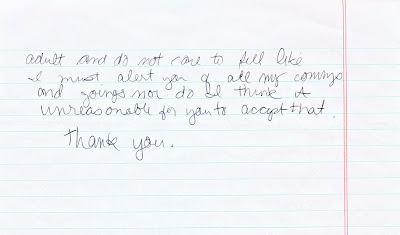 adult and do not care to fell like
I must alert you of all my comings
and goings nor do I think it
unreasonable for you to accept that.
Thank you.